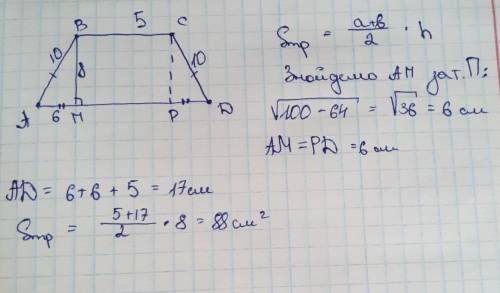 B 5 C
10 8 10
A 6 M P D
Sтр = a+b/2 · h
Знайдемо AM за т.П:
√100-64 = √36 = 6 см
AM = PD = 6 см
AD = 6+6+5 = 17см
Sтр = 5+17/2 · 8 = 88см²